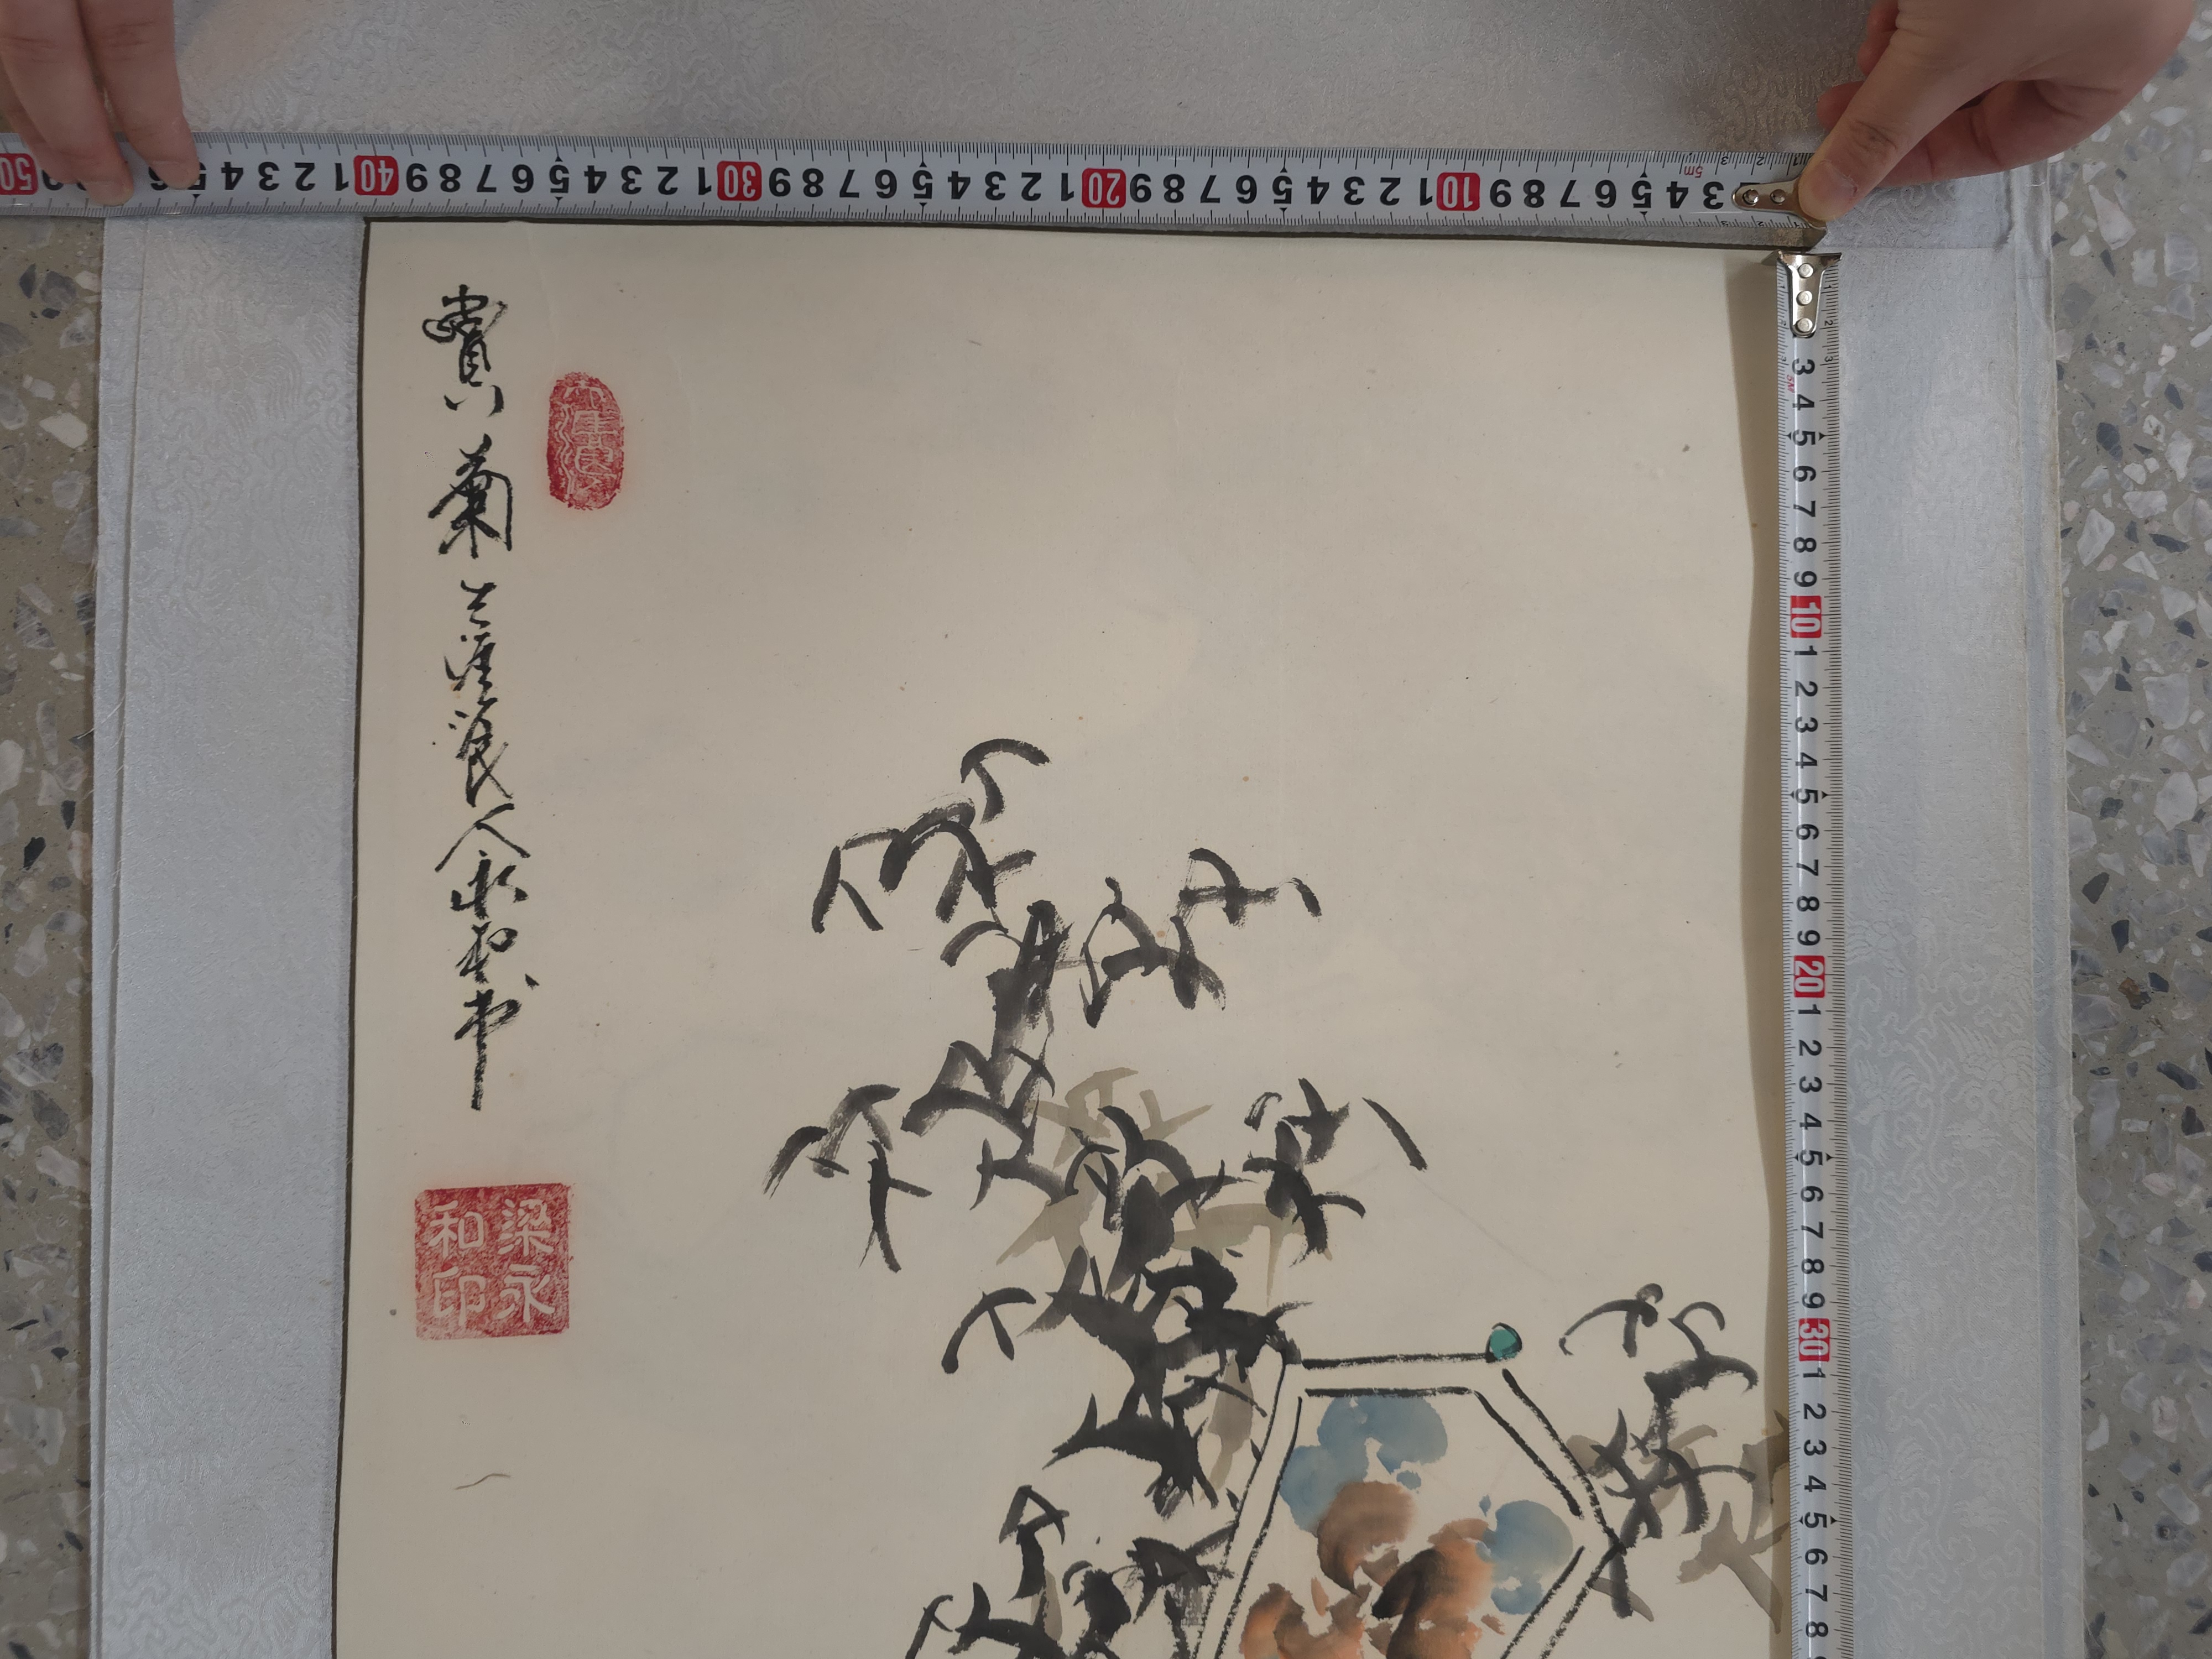 賞菊
天涯浪人永和书
天涯浪人
梁永和印
50 9 6 5 4 3 2 1 40 9 8 7 6 5 4 3 2 1 30 9 8 7 6 5 4 3 2 1 20 9 8 7 6 5 4 3 2 1 10 9 8 7 6 5 4 3
5m
3 4 5 6 7 8 9 10 1 2 3 4 5 6 7 8 9 20 1 2 3 4 5 6 7 8 9 30 1 2 3 4 5 6 7 8